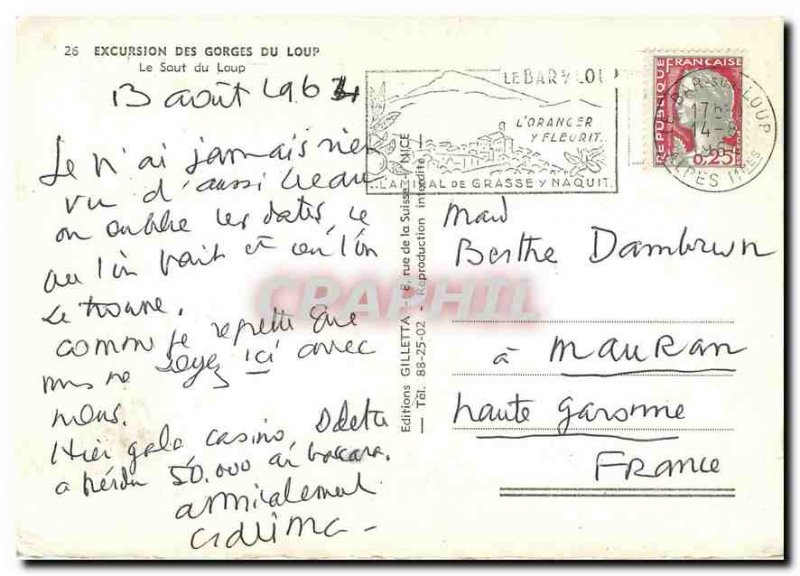 26 EXCURSION DES GORGES DU LOUP
Le Saut du Loup
13 août 1963
Je n'ai jamais rien
vu d'aussi beau
on oublie les dates, ce
que l'on fait et où l'on
se trouve.
comme je regrette que
vous ne soyez ici avec
nous.
Hier gala casino, Odette
a perdu 50.000 au baccara.
amicalement
LE BAR s/ LOUP
L'ORANGER
Y FLEURIT.
..L'AMIRAL DE GRASSE Y NAQUIT.
REPUBLIQUE FRANÇAISE
0,25
BAR-SUR-LOUP
17H
14-8
ALPES Mmes
Editions GILLETTA - 8, rue de la Suisse - NICE
— Tél. 88-25-02 - Reproduction interdite —
Mad
Berthe Dambrun
à Mauran
haute garonne
FRANCE
CRAPHIL